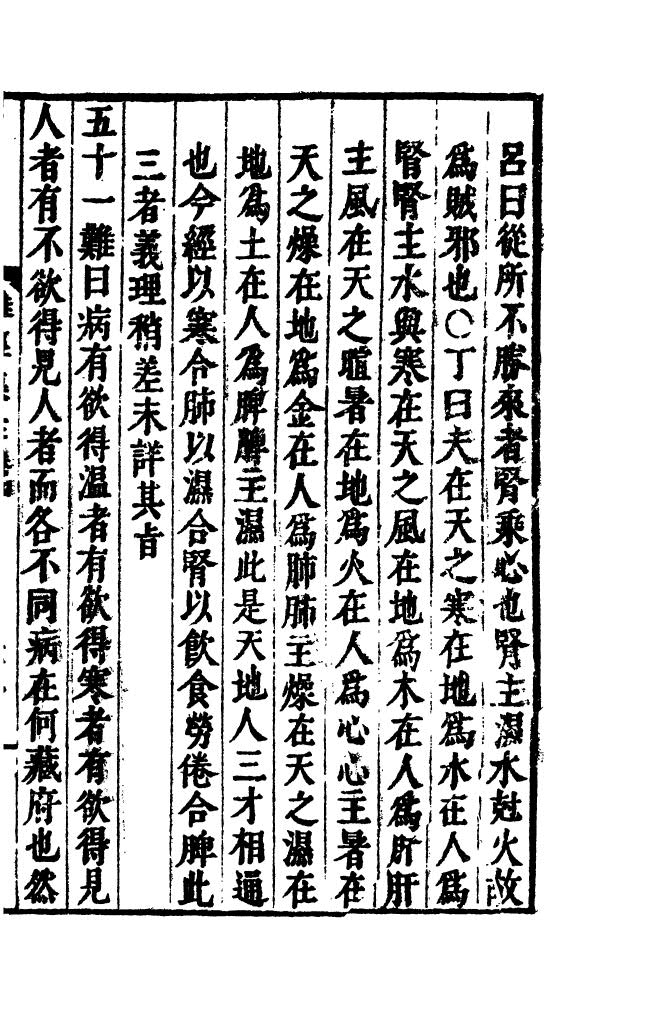 呂曰從所不勝來者腎乘心也腎主濕水尅火故
爲賊邪也〇丁曰夫在天之寒在地爲水在人爲
腎腎主水與寒在天之風在地爲木在人爲肝肝
主風在天之暄暑在地爲火在人爲心心主暑在
天之燥在地爲金在人爲肺肺主燥在天之濕在
地爲土在人爲脾脾主濕此是天地人三才相通
也今經以寒合肺以濕合腎以飲食勞倦合脾此
三者義理稍差未詳其旨
五十一難曰病有欲得溫者有欲得寒者有欲得見
人者有不欲得見人者而各不同病在何藏府也然